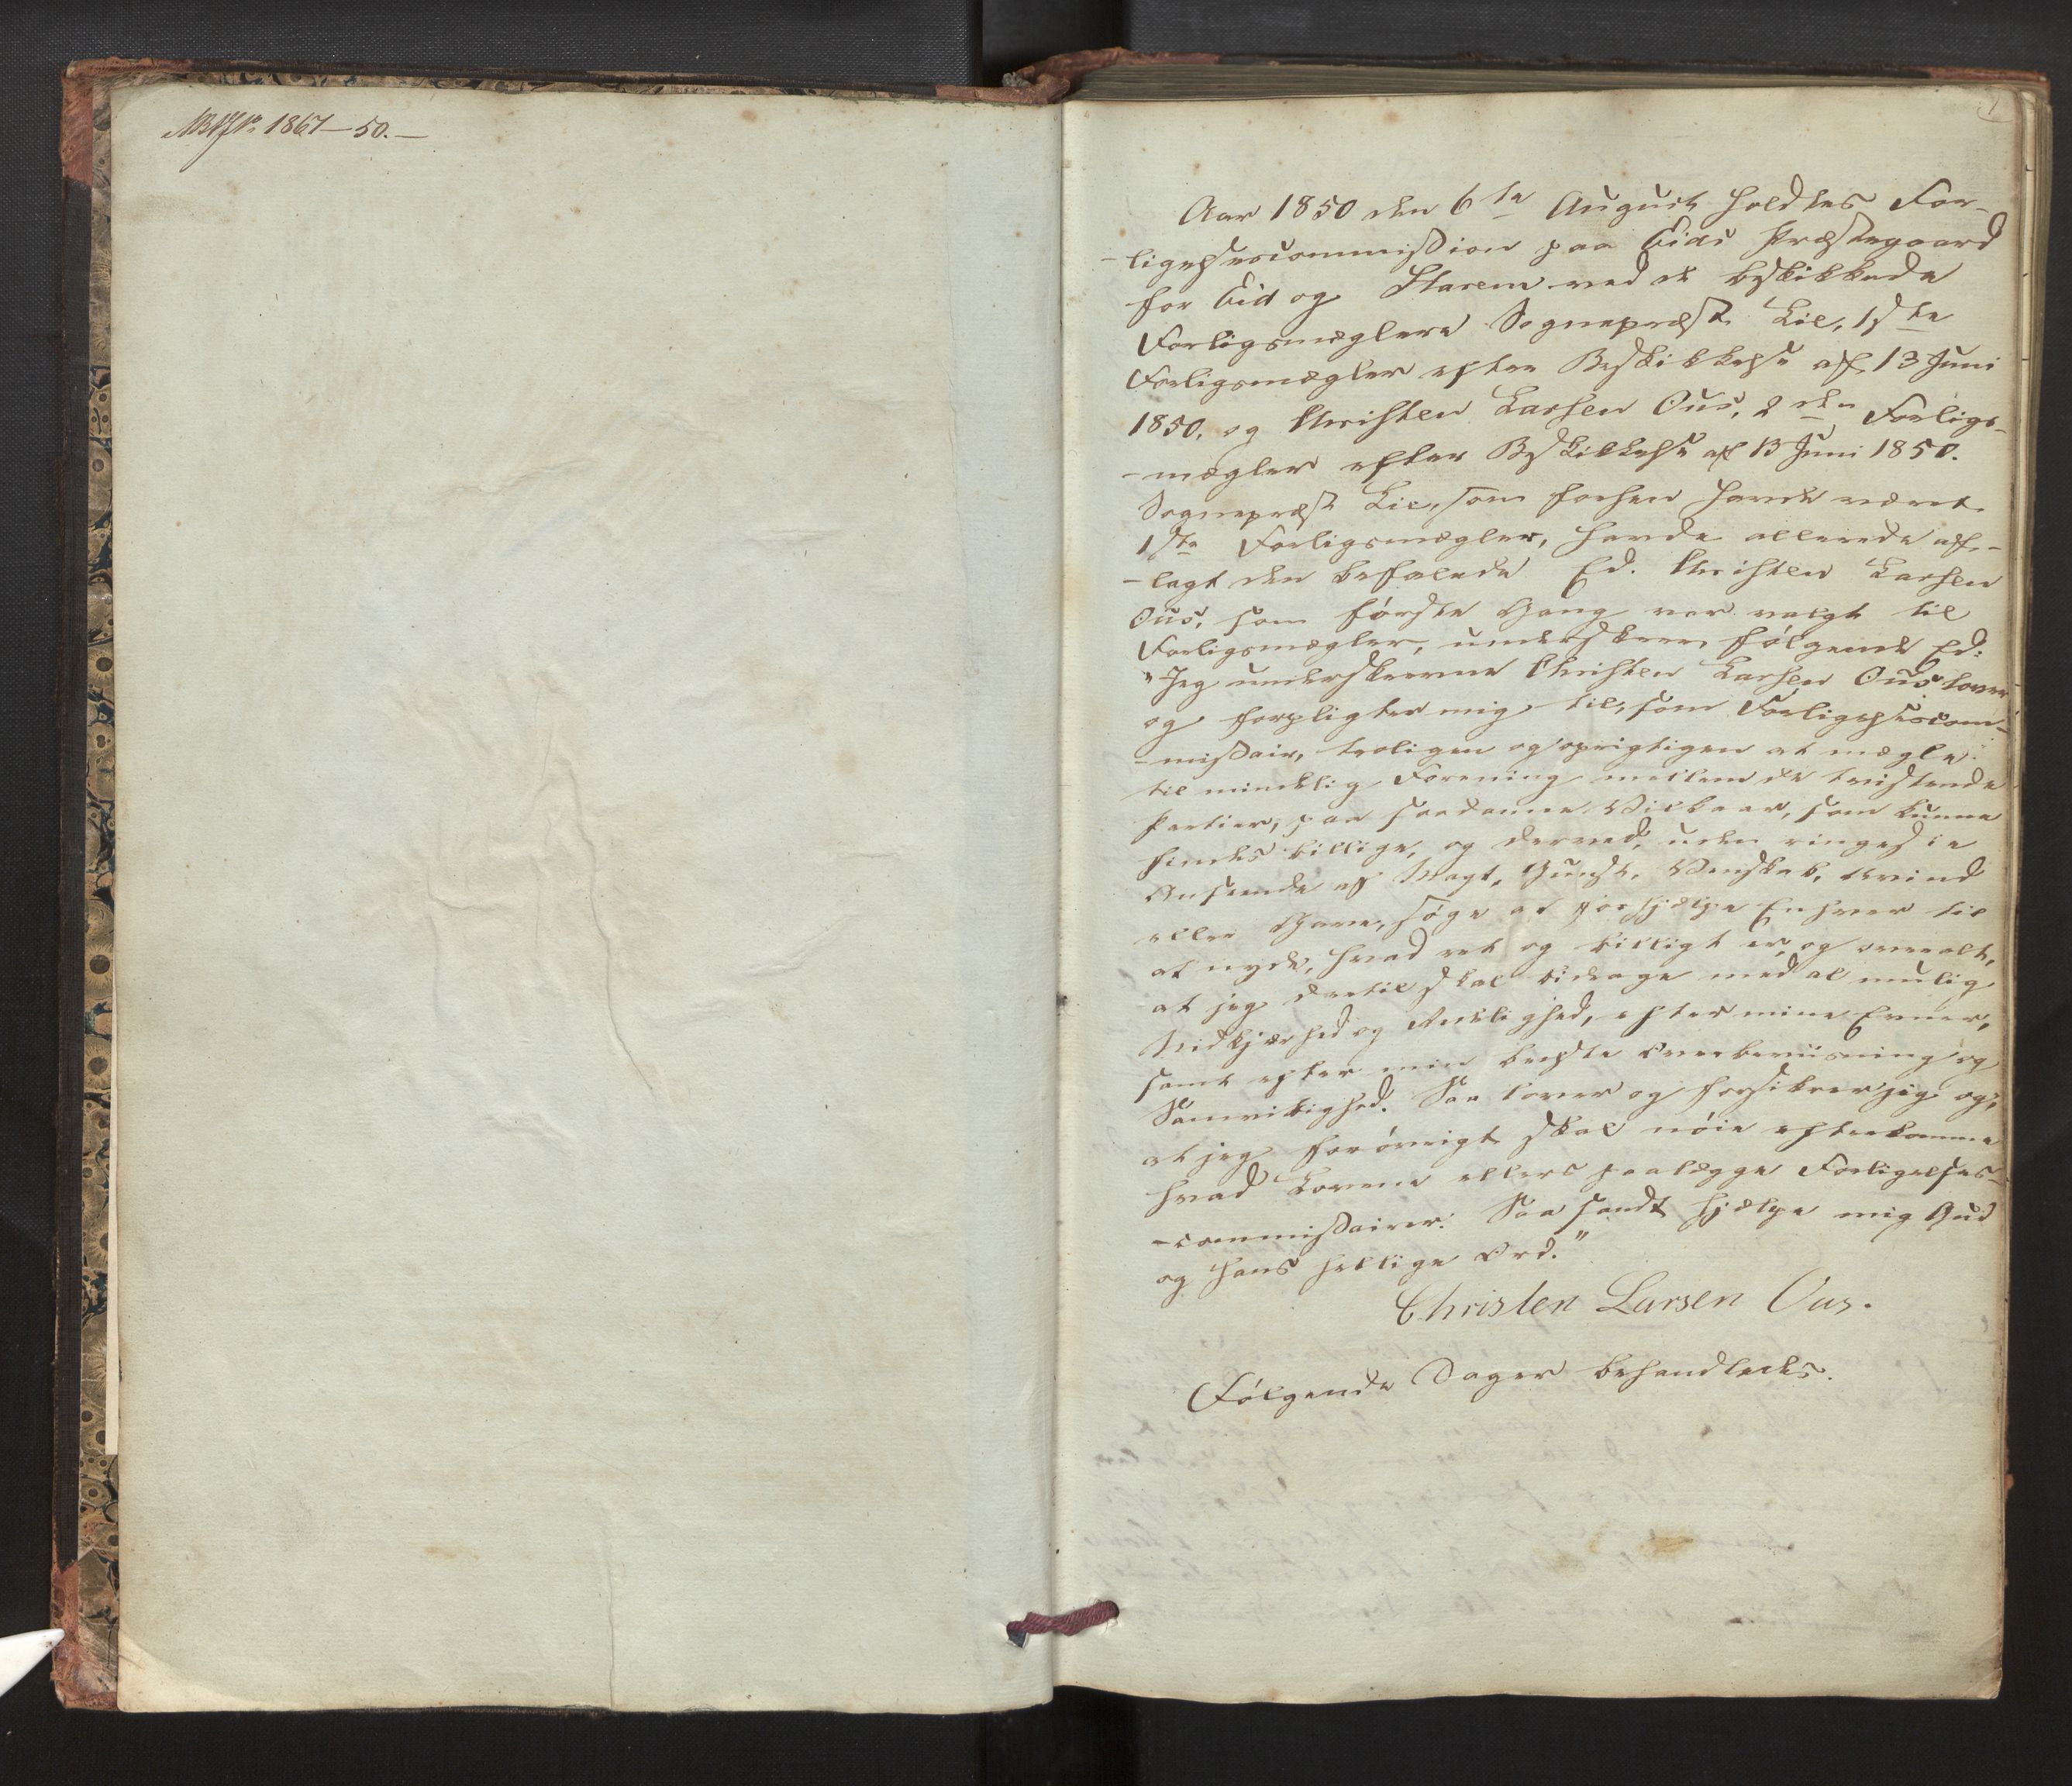 1867-50.-
1
Aar 1850 den 6te August holdtes For-
-ligelsescommission paa Eids Præstegaard
for Eid og Starem ved de beskikkede
Forligsmæglere Sognepræst Lie, 1ste
Forligsmægler efter Beskikkelse af 13 Juni
1850, og Christen Larsen Ous, 2den Forligs-
-mægler efter Beskikkelse af 13 Juni 1850.
Sognepræst Lie, som forhen havde været
1ste Forligsmægler, havde allerede af-
-lagt den befalede Ed. Christen Larsen
Ous, som første Gang var valgt til
Forligsmægler, underskrev følgende Ed:
"Jeg underskrevne Christen Larsen Ous lover
og forpligter mig til, som Forligelsescom-
-missair, troligen og oprigtigen at mægle
til mindelig Forening mellem de tvistende
Partier, paa saadanne Vilkaar, som kunne
findes billige, og derved, uden ringeste
Anseende af Magt, Gunst, Venskab, Avind
eller Gave, søge at forhjælpe Enhver til
at nyde, hvad ret og billigt er, og overalt,
at jeg dertil skal bidrage med al mulig
Nidkjærhed og Redelighed, efter mine Evner,
samt efter min bedste Overbeviisning og
Samvittighed. Saa lover og forsikrer jeg og,
at jeg forøvrigt skal nøie efterkomme
hvad Lovene ellers paalægge Forligelses-
-commissairer. Saa sandt hjælpe mig Gud
og hans hellige Ord."
Christen Larsen Ous.
Følgende Sager behandledes.